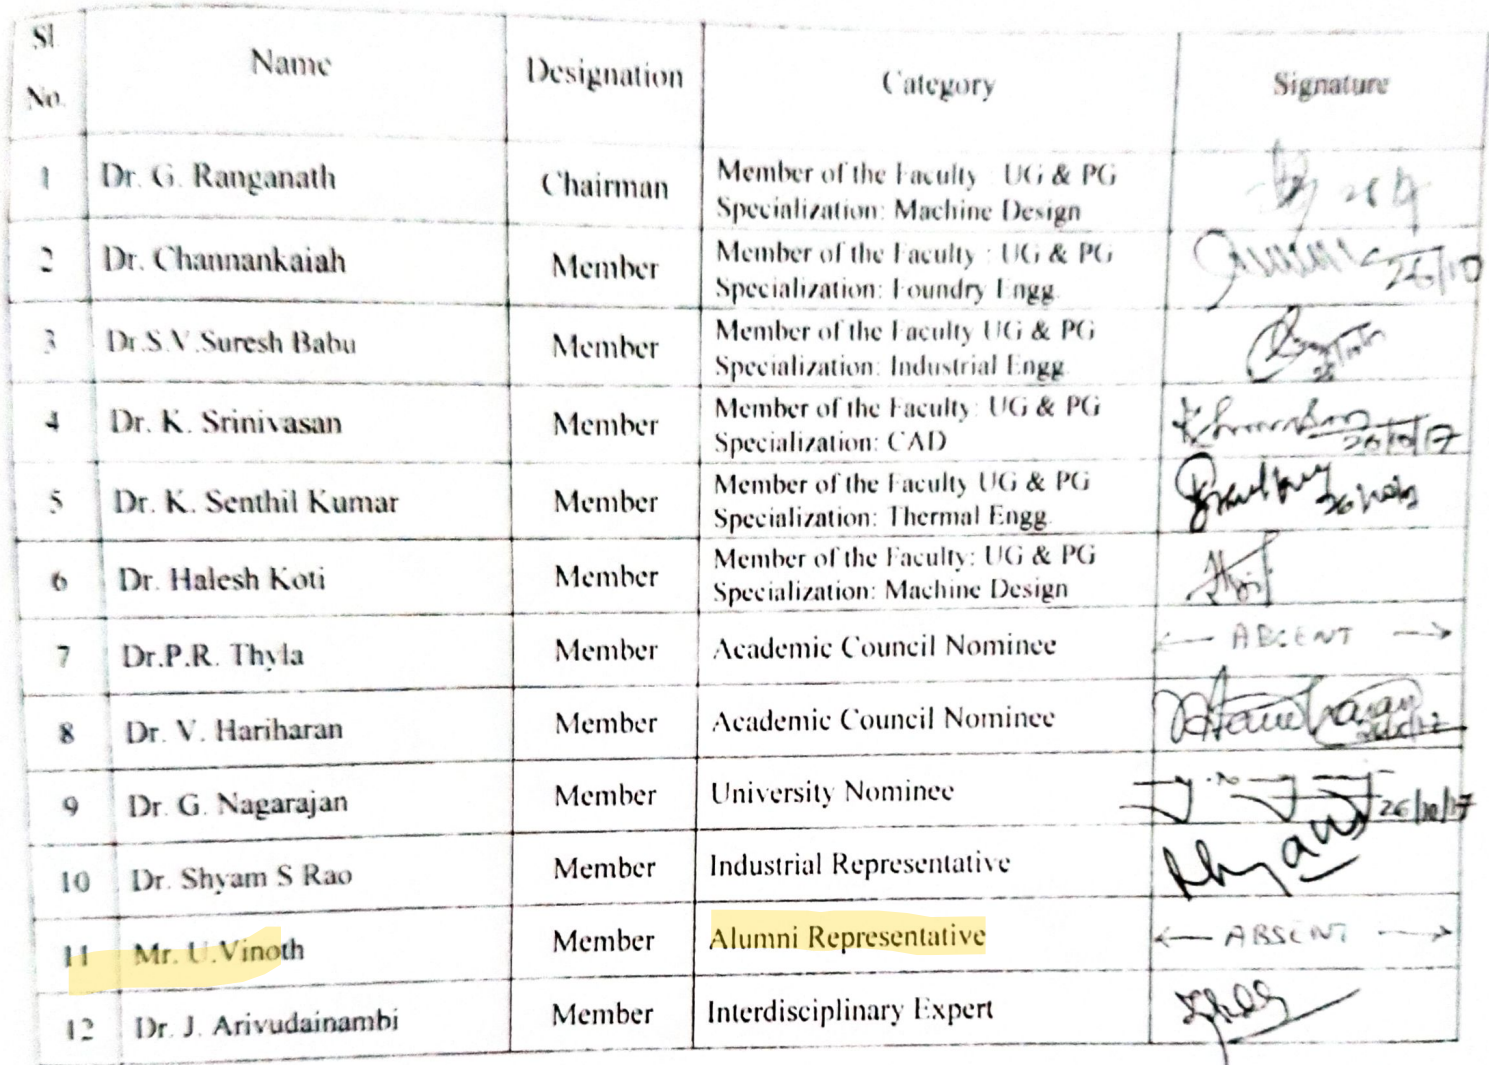 Sl. No. Name Designation Category Signature
1 Dr. G. Ranganath Chairman Member of the Faculty : UG & PG
Specialization: Machine Design
2 Dr. Channankaiah Member Member of the Faculty : UG & PG
Specialization: Foundry Engg. 26/10
3 Dr.S.V.Suresh Babu Member Member of the Faculty UG & PG
Specialization: Industrial Engg.
4 Dr. K. Srinivasan Member Member of the Faculty: UG & PG
Specialization: CAD 26/10/17
5 Dr. K. Senthil Kumar Member Member of the Faculty UG & PG
Specialization: Thermal Engg.
6 Dr. Halesh Koti Member Member of the Faculty: UG & PG
Specialization: Machine Design
7 Dr.P.R. Thyla Member Academic Council Nominee ABCENT
8 Dr. V. Hariharan Member Academic Council Nominee
9 Dr. G. Nagarajan Member University Nominee 26/10/17
10 Dr. Shyam S Rao Member Industrial Representative
11 Mr. U.Vinoth Member Alumni Representative ABSENT
12 Dr. J. Arivudainambi Member Interdisciplinary Expert